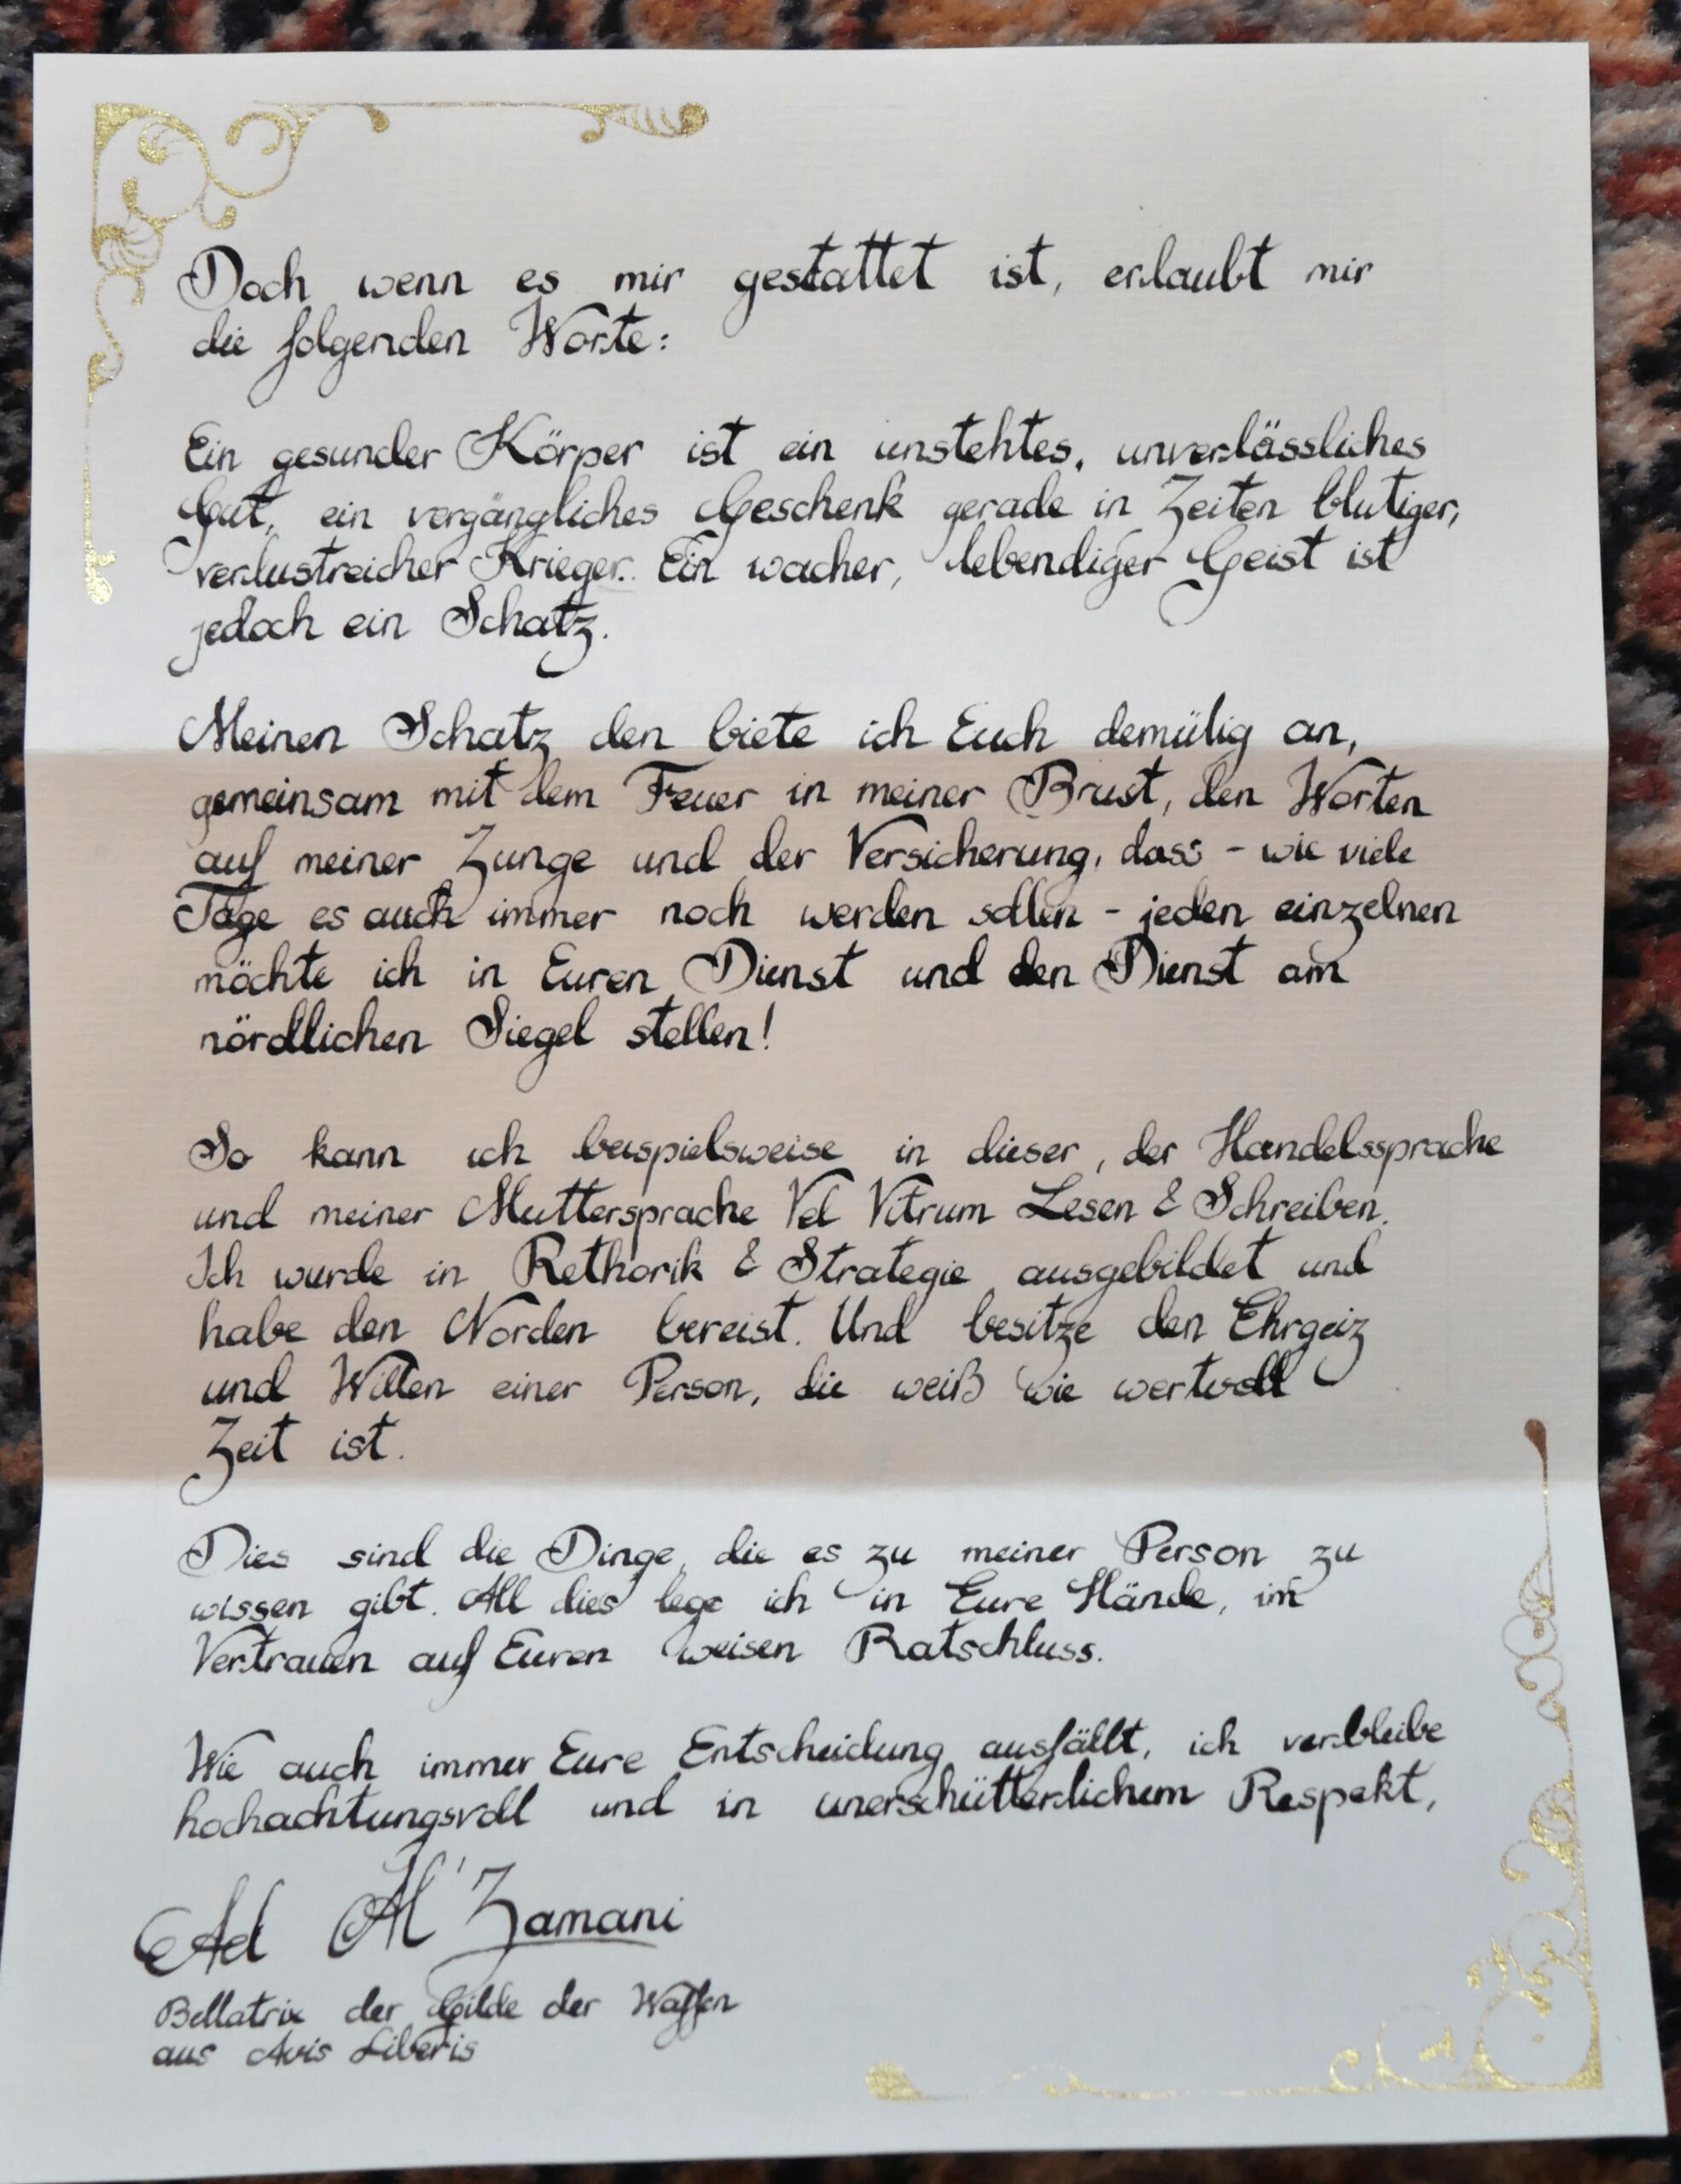 Doch wenn es mir gestattet ist, erlaubt mir
die folgenden Worte:
Ein gesunder Körper ist ein unstehtes, unverlässliches
Gut, ein vergängliches Geschenk gerade in Zeiten blutiger,
verlustreicher Krieger. Ein wacher, lebendiger Geist ist
jedoch ein Schatz.
Meinen Schatz den biete ich Euch demütig an,
gemeinsam mit dem Feuer in meiner Brust, den Worten
auf meiner Zunge und der Versicherung, dass - wie viele
Tage es auch immer noch werden sollen - jeden einzelnen
möchte ich in Euren Dienst und den Dienst am
nördlichen Siegel stellen!
So kann ich beispielsweise in dieser, der Handelssprache
und meiner Muttersprache Vel Vitrum Lesen & Schreiben.
Ich wurde in Rethorik & Strategie ausgebildet und
habe den Norden bereist. Und besitze den Ehrgeiz
und Willen einer Person, die weiß wie wertvoll
Zeit ist.
Dies sind die Dinge, die es zu meiner Person zu
wissen gibt. All dies lege ich in Eure Hände, im
Vertrauen auf Euren weisen Ratschluss.
Wie auch immer Eure Entscheidung ausfällt, ich verbleibe
hochachtungsvoll und in unerschütterlichem Respekt,
Ad Al'Zamani
Bellatrix der Gilde der Waffen
aus Avis Liberis